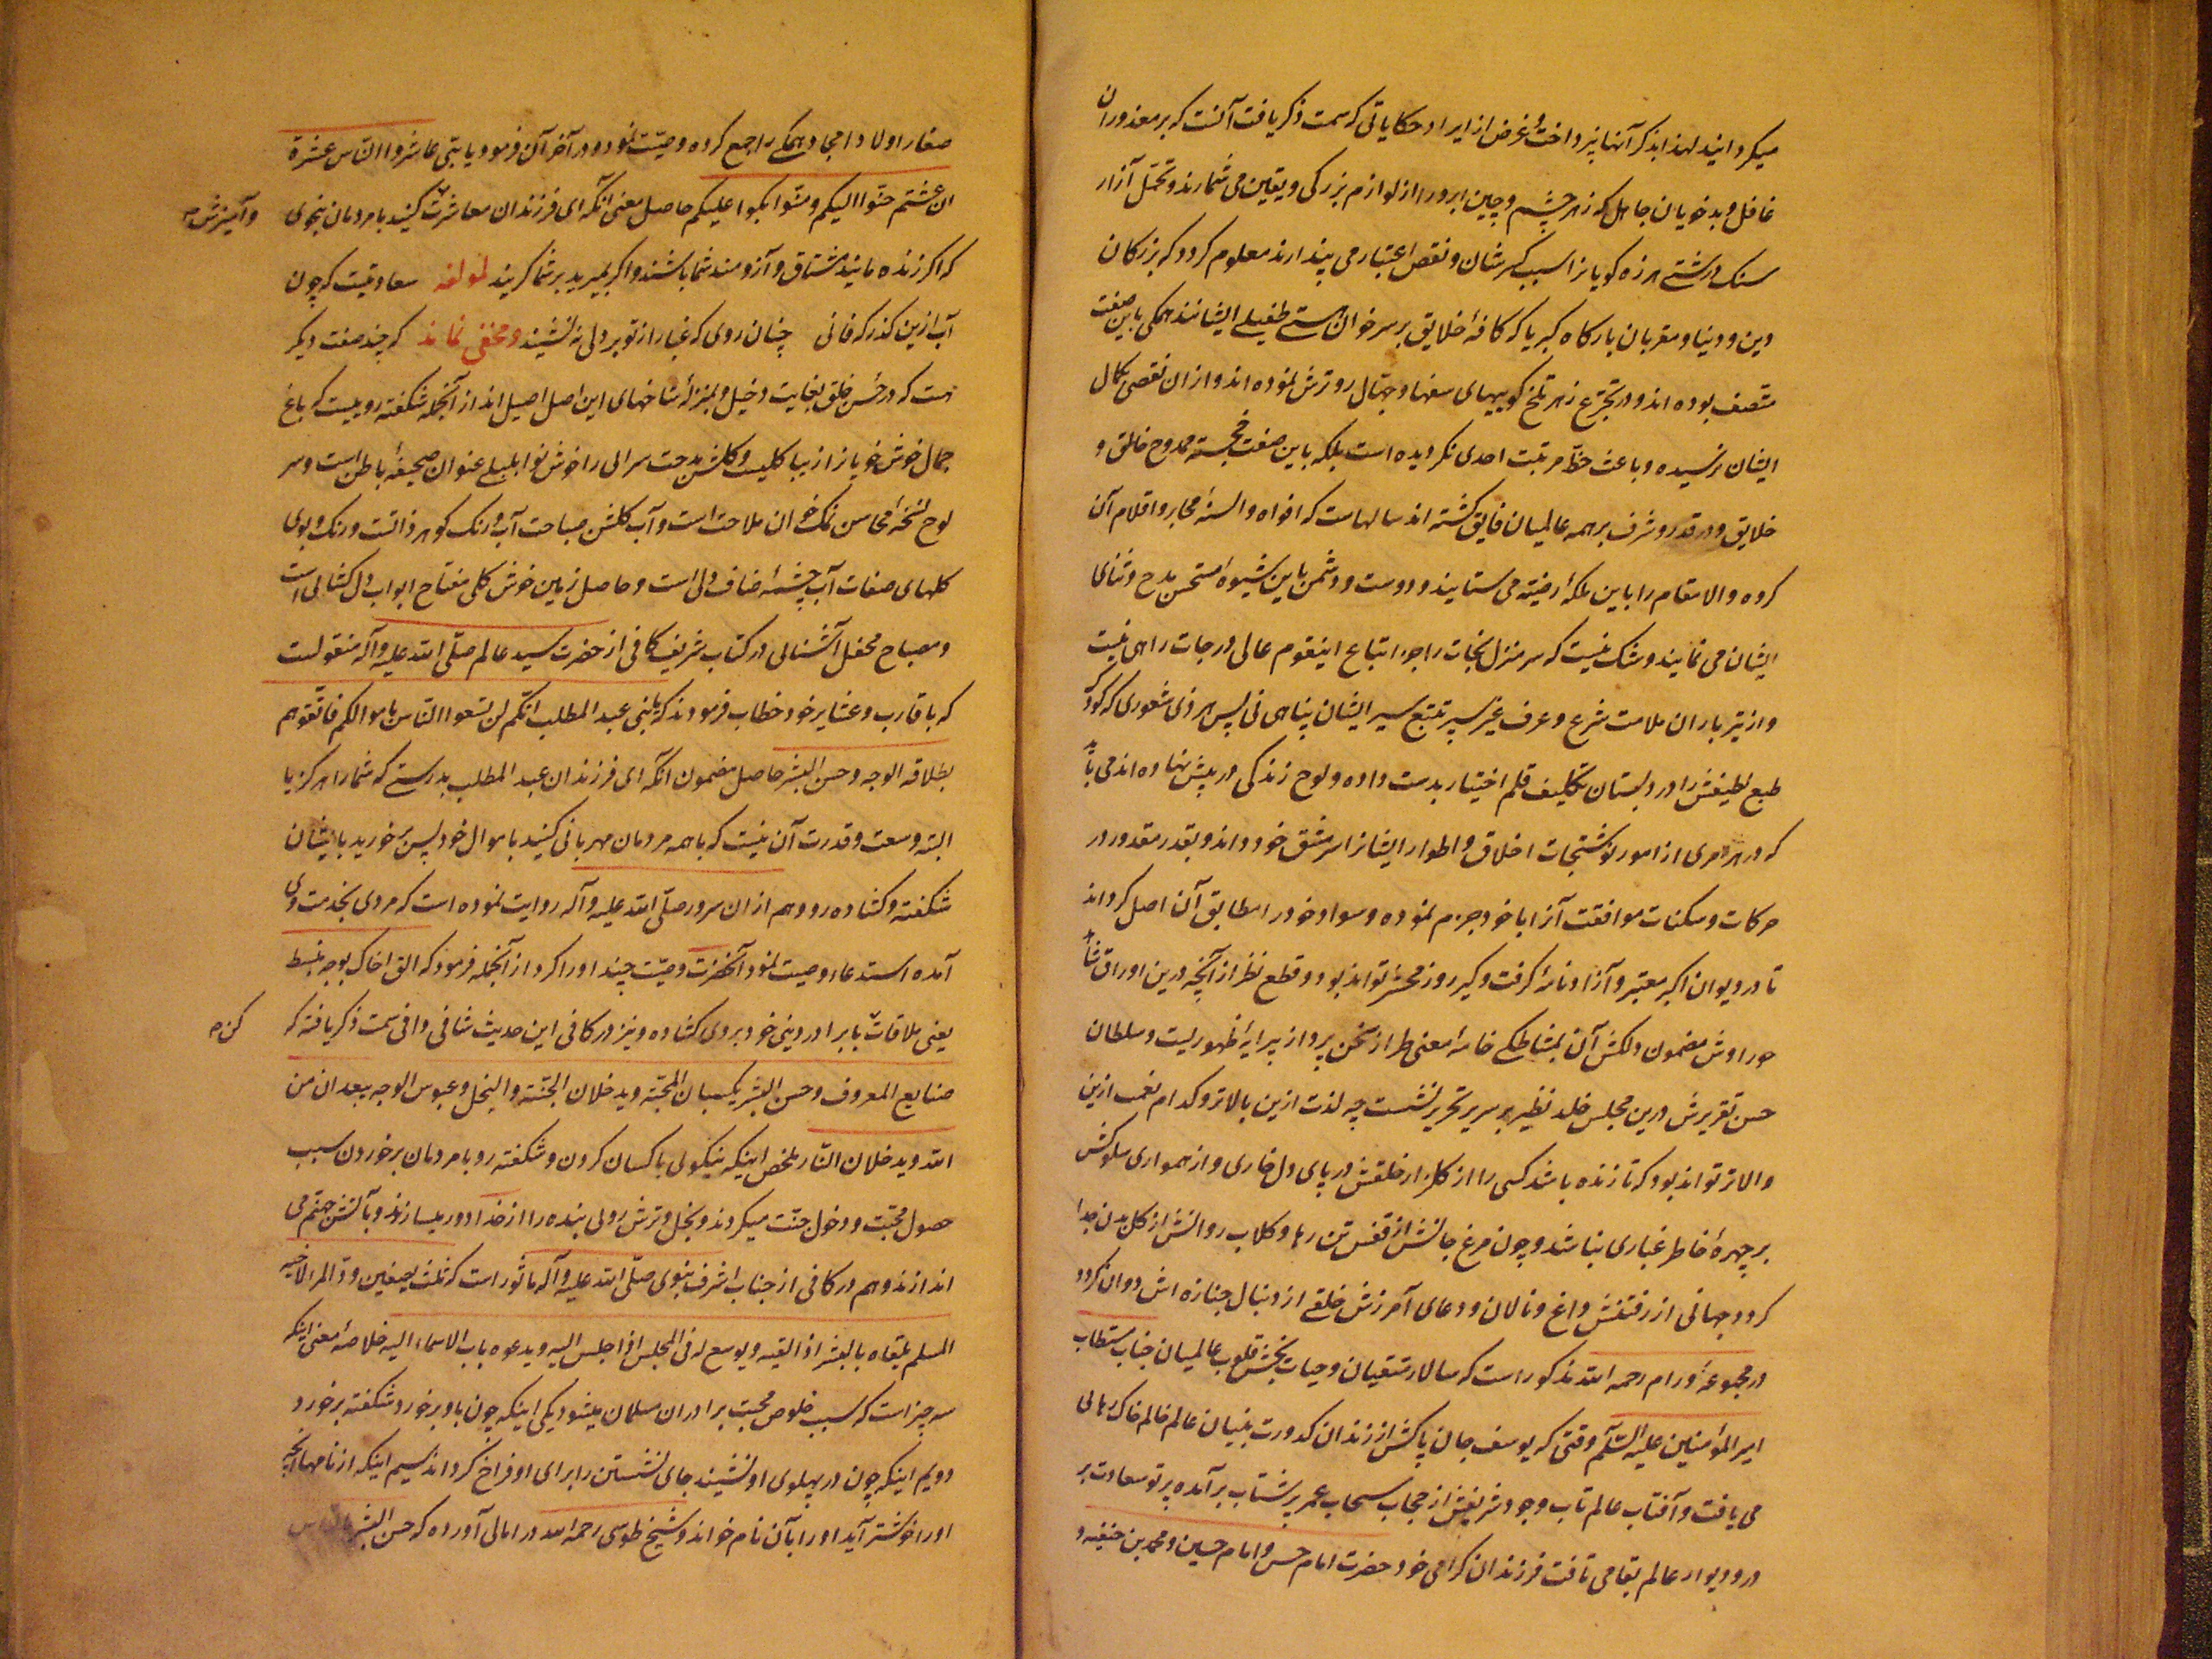 میکردانید لهذا بذکر آنها نپرداخت و غرض از ایراد حکایاتی که سمت ذکر یافت آنست که بر مغذوران
غافل و بدخویان جاهل که زهر چشم و چین ابرو را از لوازم بزرکی و یقین می شمارند و تحمل آزار
سنک درشتی هرزه کویانرا سبب کسر شان و نقص اعتبار می پندارند معلوم کردد که بزرکان
دین و دنیا و مقربان بارکاه کبریا که کافهٔ خلایق بر سر خوان هستی طفیلی ایشانند همکی باین صفت
متصف بوده اند و در تجرّع زهر تلخ کوییهای سفها و جهال رو ترش ننموده اند و از ان نقصی بکمال
ایشان نرسیده و باعث حطّ مرتبت احدی نکردیده است بلکه باین صفت خجسته ممدوح خالق و
خلایق و در قدر و شرف بر همه عالمیان فایق کشته اند سالهاست که افواه و السنهٔ محابر و اقلام آن
کروه والا مقام را باین ملکهٔ رضیّه می ستایند و دوست و دشمن باین شیوهٔ مستحسن مدح و ثنای
ایشان می نمایند و شک نیست که سر منزل نجات را جز اتباع اینقوم عالی درجات راهی نیست
و از تیر باران ملامت شرع و عرف غیر سپر تتبع سیر ایشان پناهی نی پس هر ذی شعوری که کودک
طبع لطیفش را در دبستان تکلیف قلم اختیار بدست داده و لوح زندکی در پیش نهاده اند می باید
که در هر امری از امور نوشتجات اخلاق و اطوار ایشانرا سر مشق خود داند و بقدر مقدور در
حرکات و سکنات موافقت آنرا با خود جزم نموده و سواد خود را مطابق آن اصل کرداند
تا در دیوان اکبر معتبر و آزادنامهٔ کرفت و کیر روز محشر تواند بود و قطع نظر از آنچه درین اوراق شاهد
حوراوش مضمون دلکش آن بمشاطکی خامهٔ معنی طراز سخن پرداز پیرایهٔ ظهور یست و سلطان
حسن تقریرش درین مجلس خلد نظیر بر سریر تحریر نشست چه لذت ازین بالاتر و کدام نعمت ازین
والاتر تواند بود که تا زنده باشد کسی را از کلزار خلقش در پای دل خاری و از همواری سلوکش
بر چهرهٔ خاطر غباری نباشد و چون مرغ جانش از قفس تن رها و کلاب روانش از کل بدن جدا
کردد جهانی از رفتنش داغ و نالان و دعای آمرزش خلقی از دنبال جنازه اش دوان کردد
در مجموعهٔ ورام رحمه الله مذکور است که سالار متقیان و حیات بخش قلوب عالمیان جناب مستطاب
امیر المؤمنین علیه السّلم وقتی که یوسف جان پاکش از زندان کدورت بنیان عالم خاک رهائی
می یافت و آفتاب عالم تاب وجود شریفش از حجاب سحاب عمر پر شتاب بر آمده پرتو سعادت بر
در و دیوار عالم بقا می تافت فرزندان کرامی خود حضرت امام حسن و امام حسین و محمد بن حنفیه و
صغار اولاد امجاد همکی را جمع کرده وصیّت نمود و در آخر آن فرمود یا بنّی عاشروا النّاس عشرة
ان عشتم حنّوا الیکم و متّم بکوا علیکم حاصل معنی آنکه ای فرزندان معاشرت کنید با مردمان بنحوی
و آمیزش
که اکر زنده مانید مشتاق و آرزومند شما باشند و اکر بمیرید بر شما کریند لمؤلفه سعادتیست که چون
آب ازین کذرکه فانی چنان روی که غبار از تو بر دلی نه نشیند و مخفی نماند که چند صفت دیکر
هست که در حُسن خلق بغایت دخیل و بمنزلهٔ شاخهای این اصل اصیل اند از آنجمله شکفته روییست که باغ
جمال خوش خویانرا زیبا کلیست و کلشن بهجت سرائی را خوش نوا بلبلی عنوان صحیفهٔ باطن است و سر
لوح نسخهٔ محاسن نمک خوان ملاحت است و آب کلشن صباحت آب و رنک کوهر ذاتست و رنک و بوی
کلهای صفات آب چشمهٔ صاف دلی است و حاصل زمین خوش کلی مفتاح ابواب دل کشائی است
و مصباح محفل آشنائی در کتاب شریف کافی از حضرت سید عالم صلّی الله علیه و آله منقولست
که با قارب و عشایر خود خطاب فرمودند که یا بنی عبد المطلب انّکم لن تسعوا النّاس باموالکم فالقوهم
بطلاقه الوجه و حسن البشر حاصل مضمون آنکه ای فرزندان عبد المطلب بدرستی که شما را هرکز یا
البته وسعت و قدرت آن نیست که با همه مردمان مهربانی کنید باموال خود پس برخورید باایشان
شکفته و کشاده رو و هم از ان سرور صلّی الله علیه و آله روایت نموده است که مردی بخدمت وی
آمده استدعاء وصیت نمود آنحضرت وصیّت چند او را کرد از آنجمله فرمود که الق اخاک بوجه منبسط
یعنی ملاقات با برادر دینی خود بروی کشاده و نیز در کافی این حدیث شافی وافی سمت ذکر یافته که
کن
صنایع المعروف و حسن البشر یکسبان المحبّة و یدخلان الجنّة و البخل و عبوس الوجه یبعدان من
الله و یدخلان النّار ملخص اینکه نیکوئی با کسان کردن و شکفته رو با مردمان برخوردن سبب
حصول محبّت و دخول جنّت میکردند و بخل و ترش روئی بنده را از خدا دور میسازند و بآتش جهنّم می
اندازند و هم در کافی از جناب اشرف نبوی صلّی الله علیه و آله ماثور است که ثلث یصفین ودّ المرء لاخیه
المسلم یلقاه بالبشر اذا لقیه و یوسع له فی المجلس اذا جلس الیه و یدعوه باحب الاسماء الیه خلاصهٔ معنی اینکه
سه چیز است که سبب خلوص محبت برادران مسلمان میشود یکی اینکه چون باو برخورد شکفته برخورد
دویم اینکه چون در پهلوی او نشیند جای نشستن را برای او فراخ کرداند سیم اینکه از نامها آنچه
او را خوشتر آید او را بآن نام خواند و شیخ طوسی رحمه الله در امالی آورده که حسن البشر